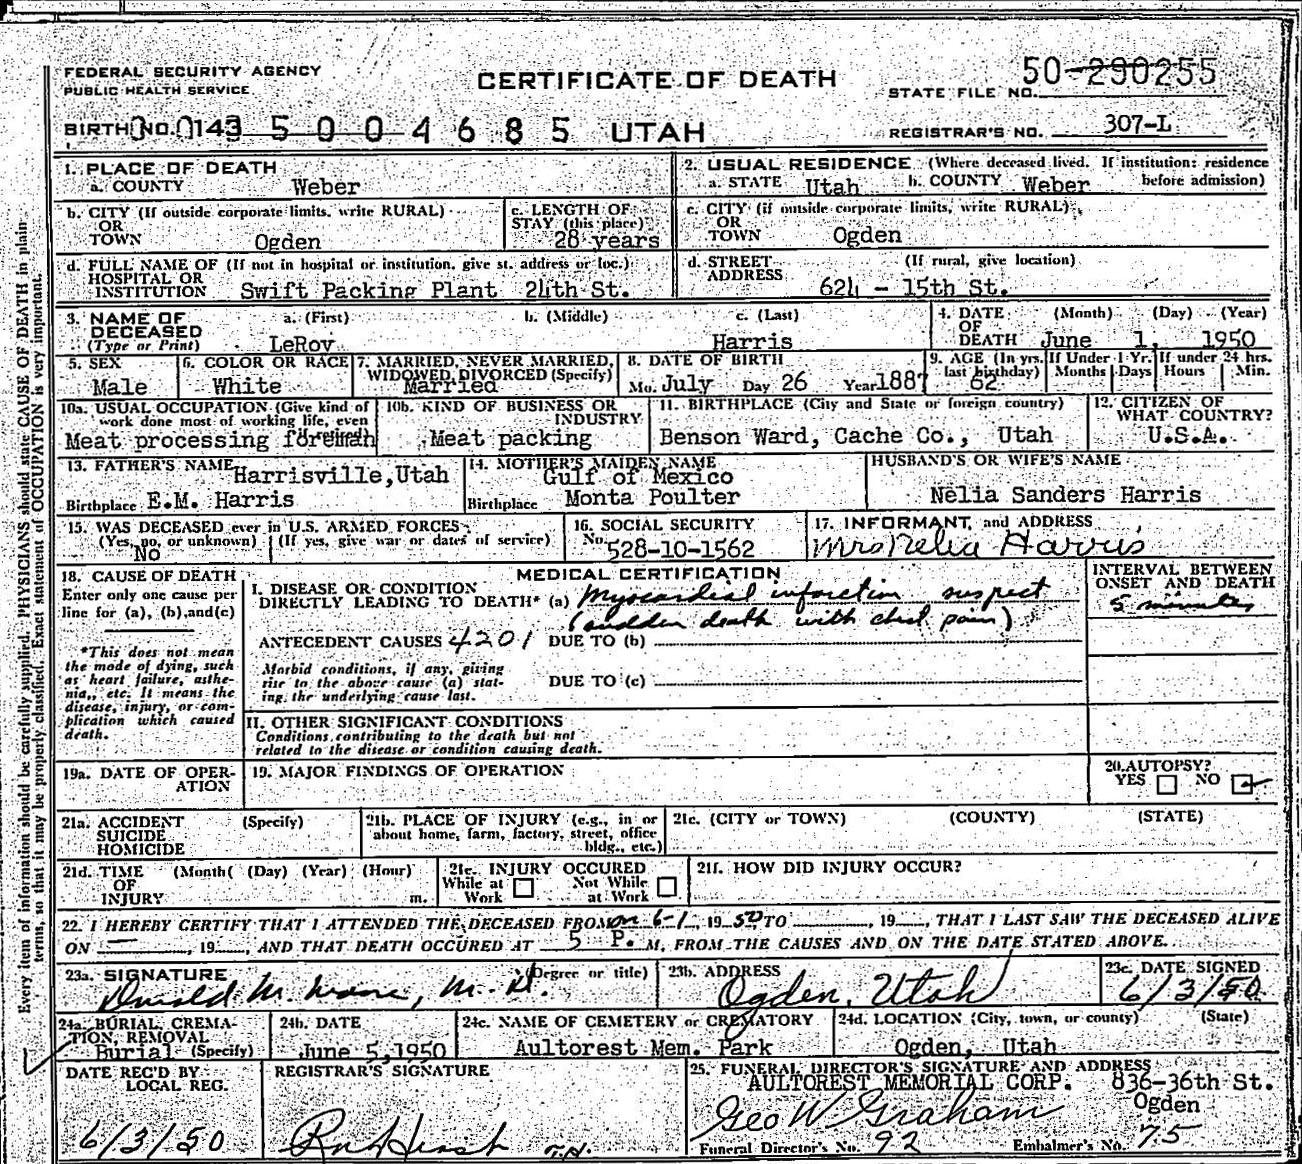 FEDERAL SECURITY AGENCY
PUBLIC HEALTH SERVICE
CERTIFICATE OF DEATH
STATE FILE NO. 50-290255
BIRTH NO. 0143 5004685 UTAH
REGISTRAR'S NO. 307-L
1. PLACE OF DEATH
a. COUNTY Weber
2. USUAL RESIDENCE (Where deceased lived. If institution: residence before admission)
a. STATE Utah b. COUNTY Weber
b. CITY (If outside corporate limits, write RURAL) OR TOWN Ogden
c. LENGTH OF STAY (this place) 28 years
c. CITY (if outside corporate limits, write RURAL) OR TOWN Ogden
d. FULL NAME OF (If not in hospital or institution, give st. address or loc.) HOSPITAL OR INSTITUTION Swift Packing Plant 24th St.
d. STREET ADDRESS (If rural, give location) 624 - 15th St.
3. NAME OF DECEASED (Type or Print) a. (First) b. (Middle) c. (Last)
LeRoy Harris
4. DATE OF DEATH (Month) (Day) (Year)
June 1, 1950
5. SEX Male
6. COLOR OR RACE White
7. MARRIED, NEVER MARRIED, WIDOWED, DIVORCED (Specify) Married
8. DATE OF BIRTH Mo. July Day 26 Year 1887
9. AGE (In yrs. last birthday) 62
If Under 1 Yr. Months Days
If under 24 hrs. Hours Min.
10a. USUAL OCCUPATION (Give kind of work done most of working life, even
Meat processing foreman
10b. KIND OF BUSINESS OR INDUSTRY Meat packing
11. BIRTHPLACE (City and State or foreign country)
Benson Ward, Cache Co., Utah
12. CITIZEN OF WHAT COUNTRY? U.S.A.
13. FATHER'S NAME Harrisville, Utah
Birthplace E.M. Harris
14. MOTHER'S MAIDEN NAME Gulf of Mexico
Birthplace Monta Poulter
HUSBAND'S OR WIFE'S NAME
Nelia Sanders Harris
15. WAS DECEASED ever in U.S. ARMED FORCES
(Yes, no, or unknown) (If yes, give war or dates of service)
No
16. SOCIAL SECURITY No. 528-10-1562
17. INFORMANT, and ADDRESS
Mrs Nelia Harris
18. CAUSE OF DEATH
Enter only one cause per line for (a), (b), and (c)
*This does not mean the mode of dying, such as heart failure, asthenia, etc. It means the disease, injury, or complication which caused death.
MEDICAL CERTIFICATION
I. DISEASE OR CONDITION DIRECTLY LEADING TO DEATH* (a) Myocardial infarction suspect
(sudden death with chest pain)
INTERVAL BETWEEN ONSET AND DEATH
5 minutes
ANTECEDENT CAUSES 4201 DUE TO (b)
Morbid conditions, if any, giving rise to the above cause (a) stating the underlying cause last.
DUE TO (c)
II. OTHER SIGNIFICANT CONDITIONS
Conditions contributing to the death but not related to the disease or condition causing death.
19a. DATE OF OPERATION
19. MAJOR FINDINGS OF OPERATION
20. AUTOPSY?
YES NO
21a. ACCIDENT SUICIDE HOMICIDE (Specify)
21b. PLACE OF INJURY (e.g., in or about home, farm, factory, street, office bldg., etc.)
21c. (CITY or TOWN) (COUNTY) (STATE)
21d. TIME OF INJURY (Month( (Day) (Year) (Hour) m.
21e. INJURY OCCURED
While at Work Not While at Work
21f. HOW DID INJURY OCCUR?
22. I HEREBY CERTIFY THAT I ATTENDED THE DECEASED FROM on 6-1, 1950 TO , 19 , THAT I LAST SAW THE DECEASED ALIVE
ON — , 19 , AND THAT DEATH OCCURED AT 5 P. M, FROM THE CAUSES AND ON THE DATE STATED ABOVE.
23a. SIGNATURE (Degree or title)
Donald M. Moore, M.D.
23b. ADDRESS
Ogden, Utah
23c. DATE SIGNED
6/3/50
24a. BURIAL, CREMATION, REMOVAL (Specify) Burial
24b. DATE June 5, 1950
24c. NAME OF CEMETERY or CREMATORY
Aultorest Mem. Park
24d. LOCATION (City, town, or county) (State)
Ogden, Utah
DATE REC'D BY LOCAL REG.
6/3/50
REGISTRAR'S SIGNATURE
25. FUNERAL DIRECTOR'S SIGNATURE AND ADDRESS
AULTOREST MEMORIAL CORP. 836-36th St.
Ogden
Geo W Graham
Funeral Director's No. 92 Embalmer's No. 75
Every item of information should be carefully supplied. PHYSICIANS should state CAUSE OF DEATH in plain
terms, so that it may be properly classified. Exact statement of OCCUPATION is very important.